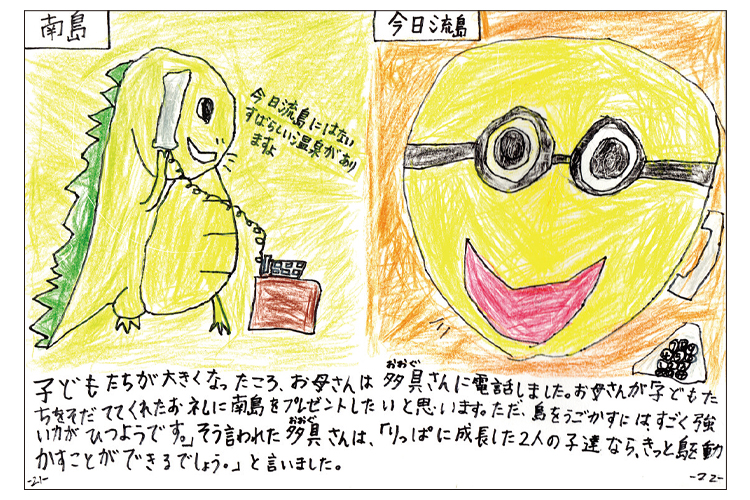 南島
今日流島にはない
すばらしい温泉があり
ますよ
今日流島
おおぐ
子どもたちが大きくなったころ、お母さんは多具さんに電話しました。お母さんが子どもた
ちをそだててくれたお礼に南島をプレゼントしたいと思います。ただ、島をうごかすにはすごく強
おおぐ
い力がひつようです。」そう言われた多具さんは、「りっぱに成長した2人の子達なら、きっと島を動
かすことができるでしょう。」と言いました。
-21-
-22-